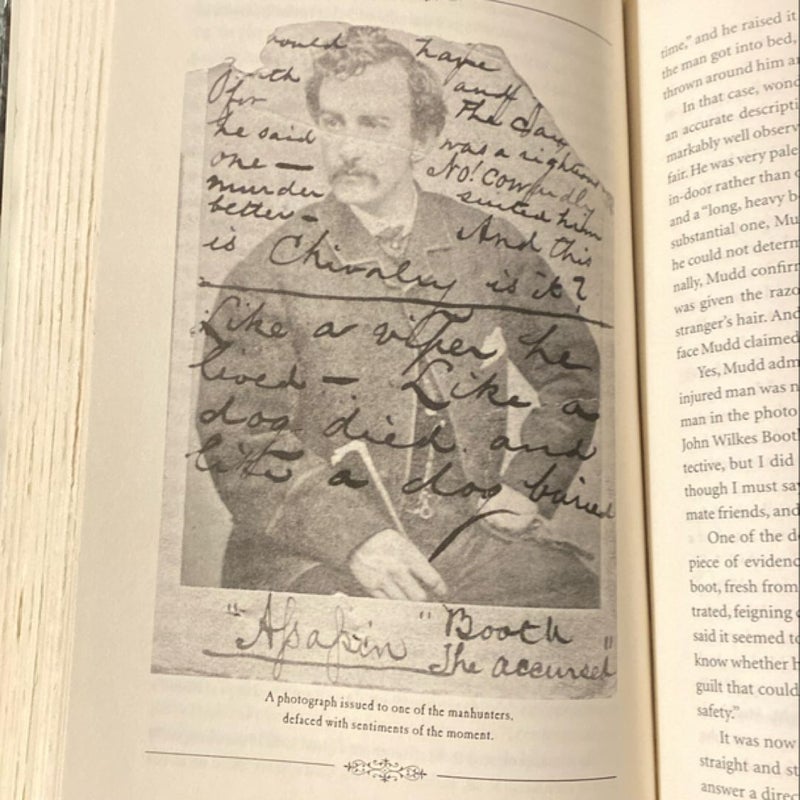 would have
and
for The day
he said was a righteous
one — No! Cowardly
murder suited him
better — And this
is Chivalry is it?
Like a viper he
lived — Like a
dog died and
like a dog buried
"Assassin" Booth
"The accurset"
A photograph issued to one of the manhunters,
defaced with sentiments of the moment.
time," and he raised it
the man got into bed,
thrown around him
In that case,
an accurate
markably well
fair. He was very pale
in-door rather than
and a "long, heavy
substantial one,
he could not
nally, Mudd
was given the
stranger's hair. And
face Mudd claimed
Yes, Mudd
injured man was
man in the photo
John Wilkes
tective, but I did
though I must say
mate friends, and
One of the
piece of
boot, fresh from
trated, feigning
said it seemed to
know whether
guilt that could
safety."
It was now
straight and
answer a